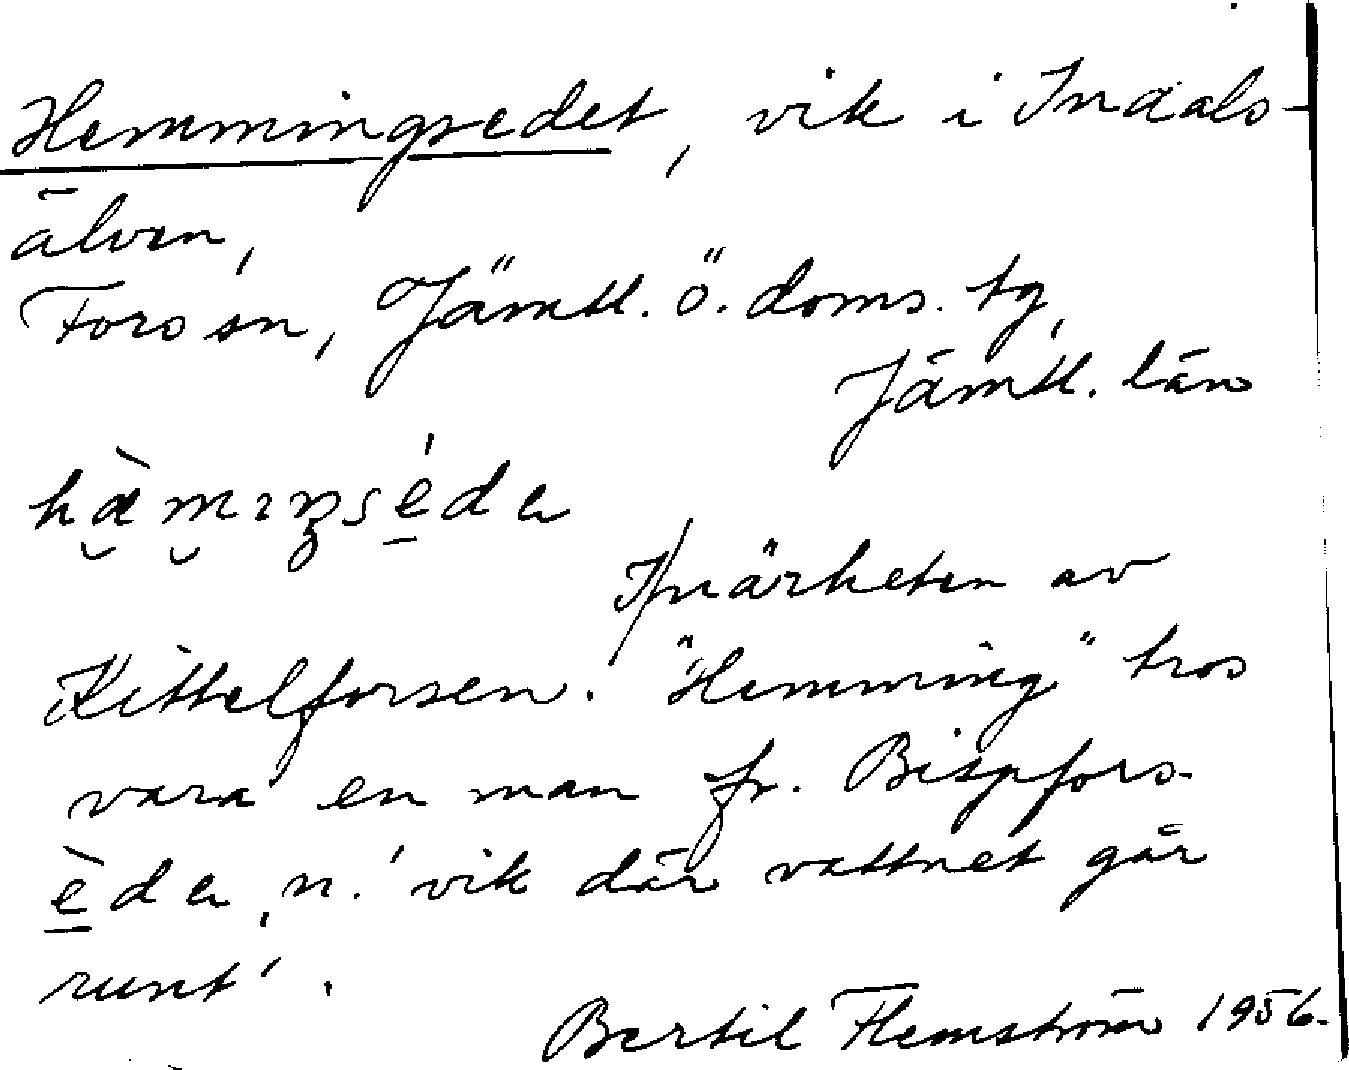 Hemmingsedet, vik i Indals-
älven,
Fors sn, Jämtl. ö. doms. tg,
Jämtl. län
hæ̀mıŋséda
I närheten av
Kittelforsen. "Hemming" tros
vara en man fr. Bispfors.
èda, n. 'vik där vattnet går
runt'.
Bertil Flemström 1956.